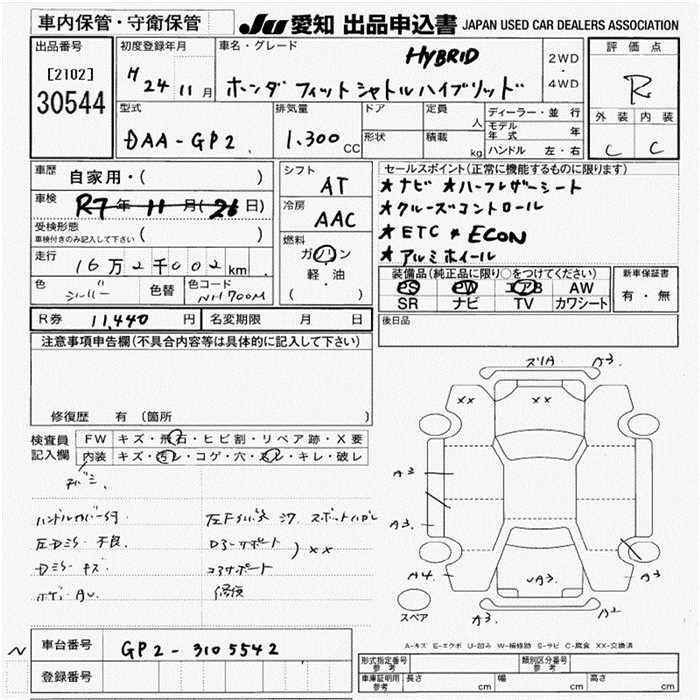 車内保管・守衛保管
JU 愛知 出品申込書 JAPAN USED CAR DEALERS ASSOCIATION
出品番号
[2102]
30544
初度登録年月
H 24年 11月
車名・グレード
HYBRID
ホンダ フィットシャトルハイブリッド
2WD
・
4WD
評価点
R
外装 内装
C C
型式
DAA-GP2
排気量
1.300 CC
ドア
形状
定員 人
積載 kg
ディーラー・並行
モデル年式 年
ハンドル 左・右
車歴
自家用・( )
車検
R7年 11月(26日)
受検形態
車検付きのみ記入して下さい ( )
走行
16万2千002km
色
シルバー
色替
色コード
NH700M
シフト
AT
冷房
AAC
燃料
ガソリン
軽・油
( )
セールスポイント(正常に機能するものに限ります)
★ナビ ★ハーフレザーシート
★クルーズコントロール
★ETC ★ECON
★アルミホイール
装備品(純正品に限り○をつけてください)
PS PW エアB AW
SR ナビ TV カワシート
新車保証書
有・無
R券 11,440 円
名変期限 月 日
後日品
注意事項申告欄(不具合内容等は具体的に記入して下さい)
修復歴 有 (箇所
検査員
記入欄
FW キズ・飛石・ヒビ割・リペア跡・X要
内装 キズ・汚レ・コゲ・穴・スレ・キレ・破レ
ハンドルカバー付
左Dミラー不良
Dミラーキズ
ボディAU
スポットハガレ
コアサポート
××
修復
ズリA A3
×× ××
A3
A3
A4
A3
A3
A3 A2
スペア
A-キズ E-エクボ U-凹み W-補修跡 S-サビ C-腐食 XX-交換済
車台番号
GP2-3105542
登録番号
型式指定番号
参考
類別区分番号
参考
車庫証明用
参考
長さ cm
幅 cm
高さ cm